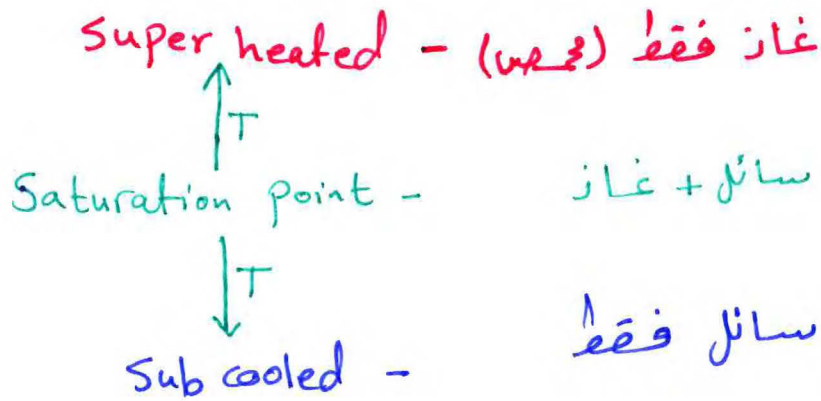 Super heated - غاز فقط (محمص)
T
Saturation point - سائل + غاز
T
Sub cooled - سائل فقط